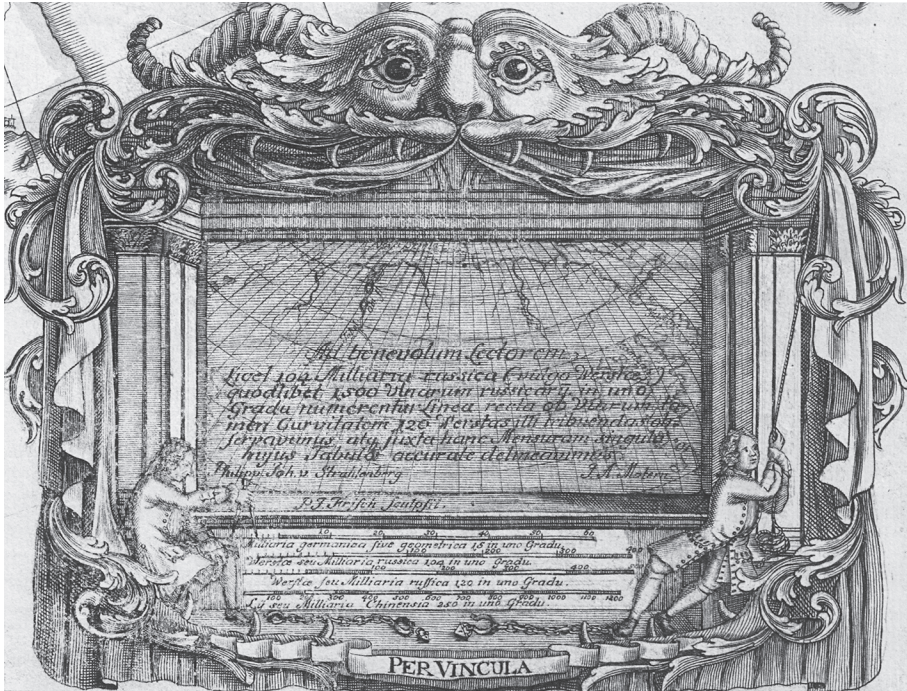 Ad benevolum Lectorem
Licet 104 Milliaria russica (vulgo Werstæ)
quodlibet 1500 Ulnarum russicarũ, in uno
Gradu numerentur Linea recta ob Viarum ta
men Curvitatem 120 Werstas illi tribuendas
servavimus, atq juxta hanc Mensuram singula
hujus Tabulæ accurate delineavimus
Philipp Joh. v. Strahlenberg J. A. Matern
P. J. Frisch sculpsit.
10 20 30 40 50 60
Milliaria germanica sive geometrica 15 in uno Gradu
100 200 300 400
Werstæ seu Milliaria russica 104 in uno Gradu
400
Werstæ seu Milliaria russica 120 in uno Gradu.
100 200 300 400 500 600 700 800 900 1000 1100 1200
Ly seu Milliaria Chinensia 250 in uno Gradu
PER VINCULA